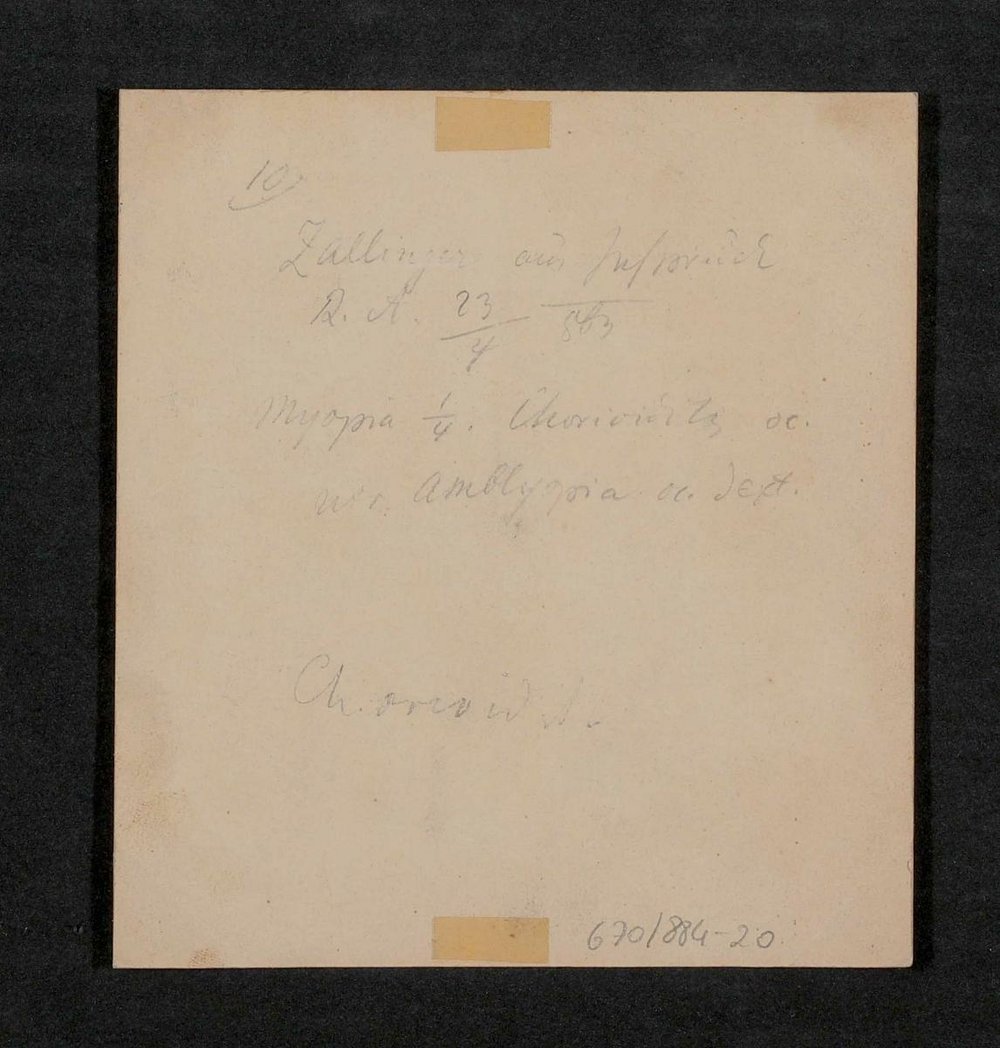 10)
Zallinger aus Insspruck
R. A. 23/4 863
Myopia 1/4. Chorioiditis oc.
Amblyopia oc. dext.
Chorioid.
670/884-20